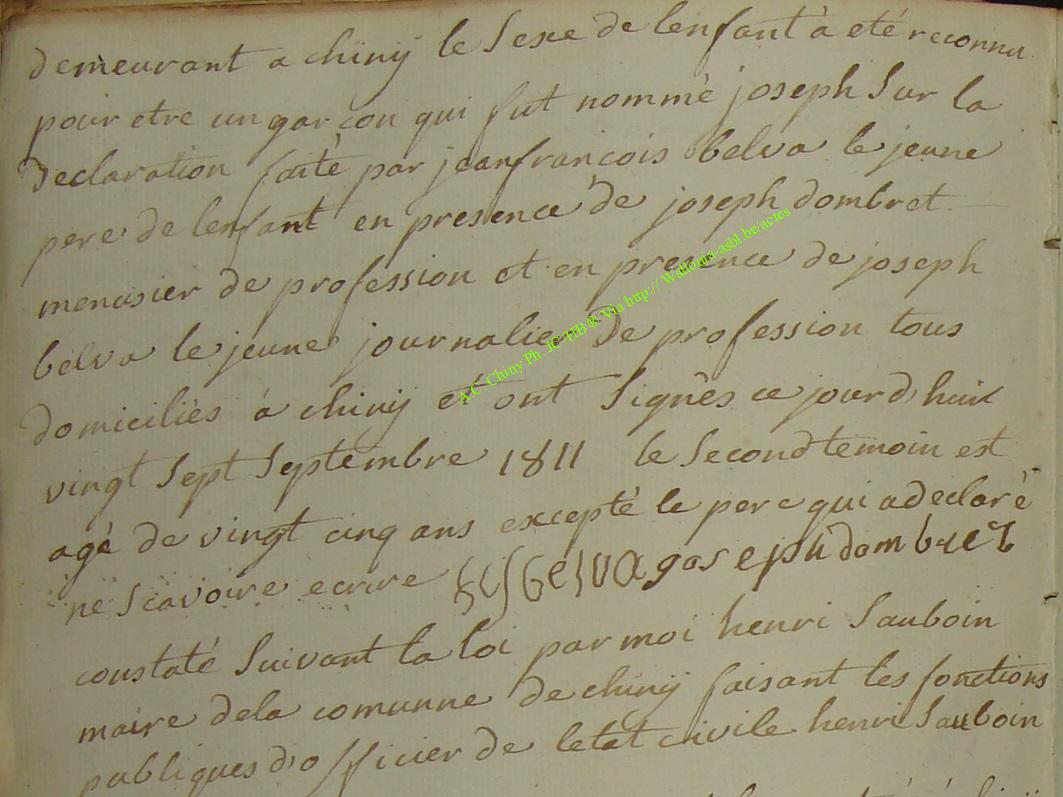 demeurant a chiny le Sexe de lenfant à eté reconnu
pour etre un garcon qui fut nommé joseph Sur la
Declaration faite par jeanfrancois belva le jeune
pere de lenfant en presence de joseph dombret
menusier de profession et en presence de joseph
belva le jeune journalier De profession tous
domiciliés à chiny et ont Signès ce jourd'huix
vingt Sept Septembre 1811 le Second temoin est
agé de vingt cinq ans excepté le pere qui a declaré
ne Scavoire ecrire belva goseph dombret
constaté Suivant la loi par moi henri Sauboin
maire dela comunne de chiny faisant les fonctions
publiques d'officier de letat civile henri Sauboin
A.C. Chiny Ph. JC HB ® Via http://Wallonia-asbl.be/actes